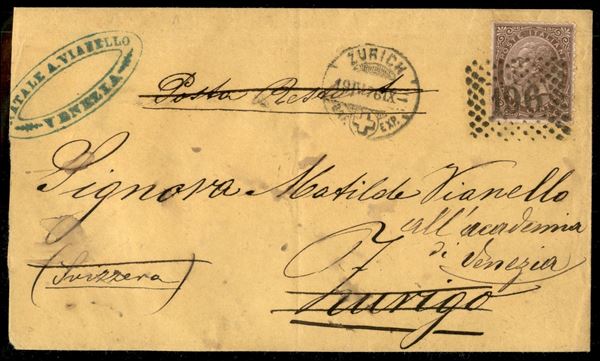 NATALE A. VIANELLO
VENEZIA
ZÜRICH
POSTE ITALIANE
196
Posta Restante
Signora Matilde Vianello
all'academia
di Venezia
(Svizzera)
Zurigo